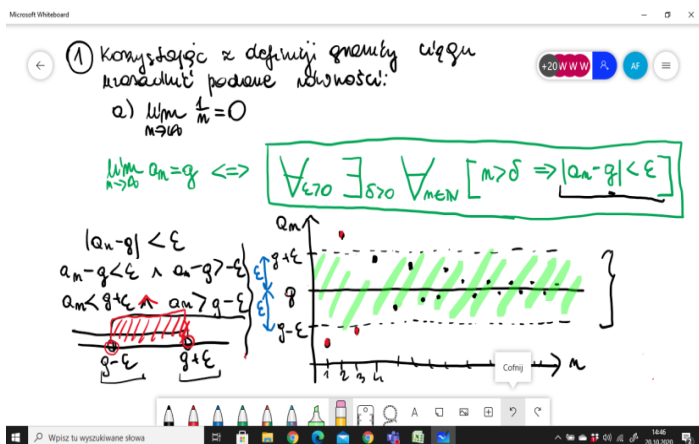 Microsoft Whiteboard
① Korzystając z definicji granicy ciągu
uzasadnić podane równości:
a) lim 1/n = 0
n→∞
+20 W W W
AF
lim aₙ = g <=> ∀ε>0 ∃δ>0 ∀n∈N [n>δ ⇒ |aₙ-g|<ε]
n→∞
|aₙ-g| < ε
aₙ-g<ε ∧ aₙ-g>-ε
aₙ<g+ε ∧ aₙ>g-ε
g-ε g+ε
aₙ
g+ε
ε
g
ε
g-ε
1 2 3 4
n
Cofnij
Wpisz tu wyszukiwane słowa
14:46
20.10.2020